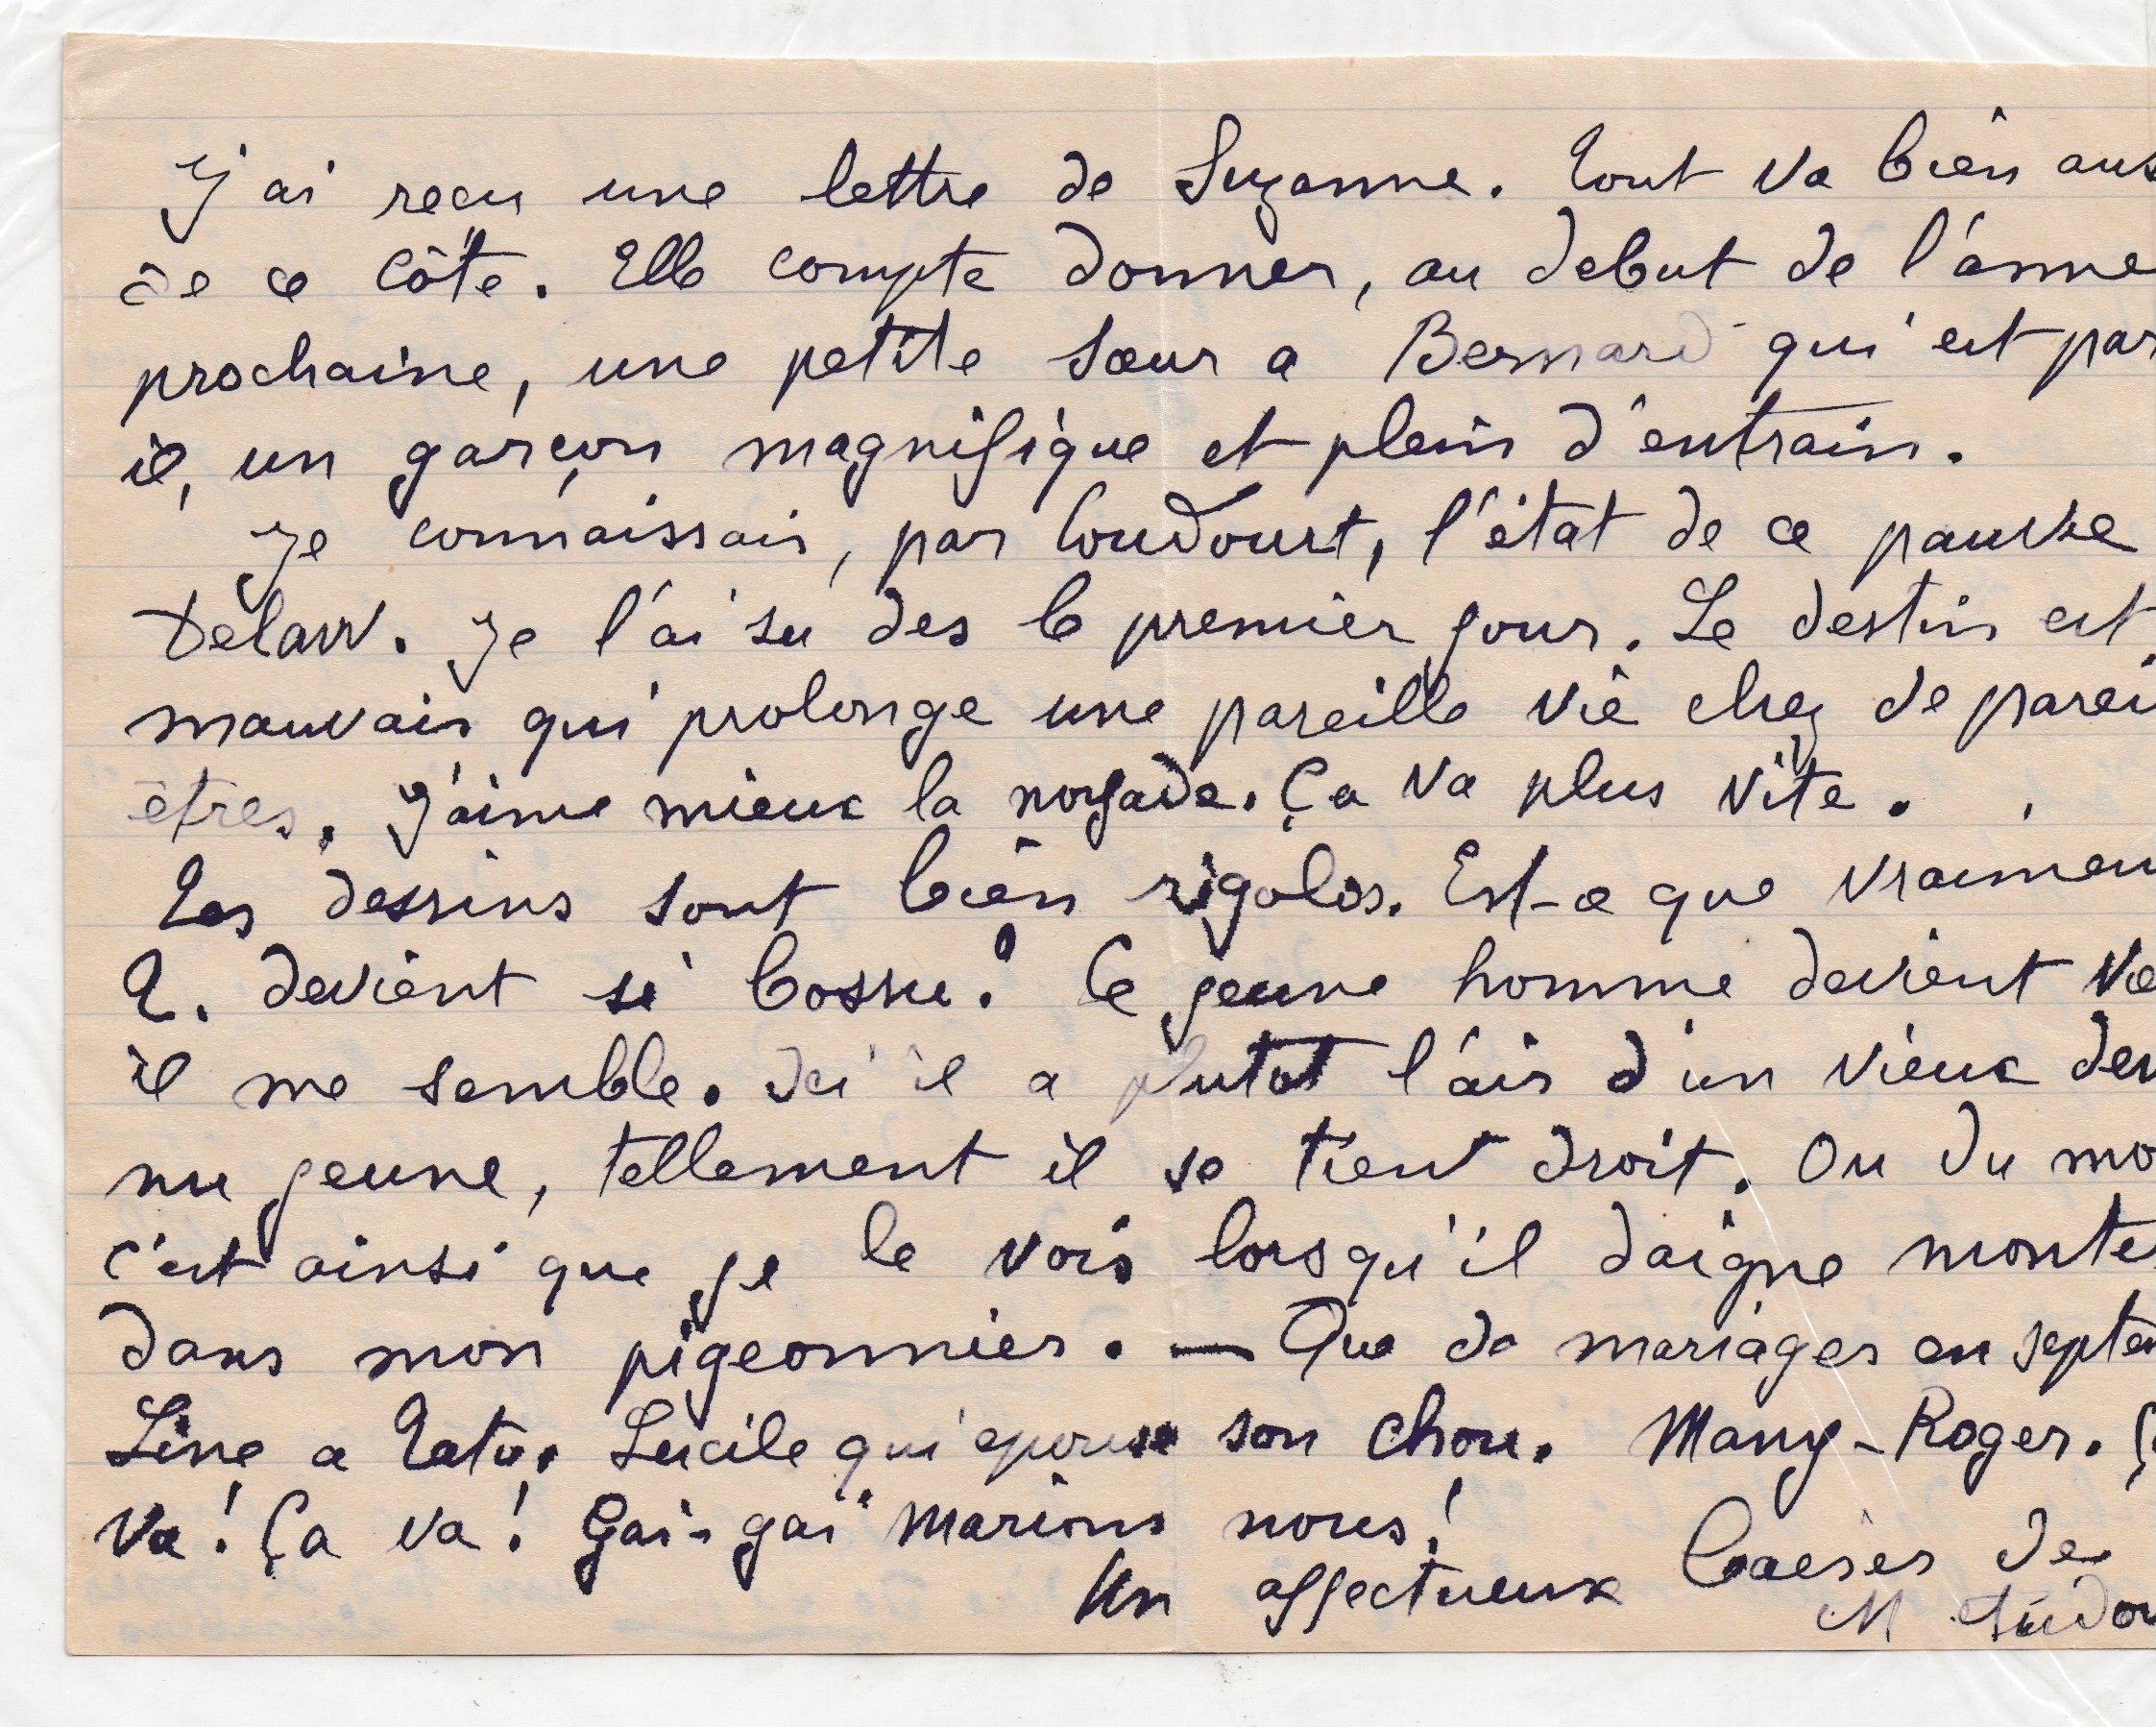 J'ai reçu une lettre de Suzanne. Tout va bien aus
de ce côté. Elle compte donner, au debut de l'anne
prochaine, une petite sœur a Bernard qui est par
il, un garçon magnifique et plein d'entrain.
Je connaissais, par Coudourt, l'état de ce pauvre
Delaw. Je l'ai su des le premier jour. Le destin est
mauvais qui prolonge une pareille vie chez de parei
êtres. J'aime mieux la noyade. Ça va plus vite.
Les dessins sont bien rigolos. Est-ce que vraimen
T. devient si bossu? Ce jeune homme devient
il me semble. Ici il a plutot l'air d'un vieux deve
nu jeune, tellement il se tient droit. Ou du mo
c'est ainsi que je le vois lorsqu'il daigne monte
dans mon pigeonnier. — Que de mariages en septe
Line a Tato. Lucile qui epouse son chou. Many-Roger. Ç
va! Ça va! Gai-gai marions nous!
Un affectueux baiser de
M